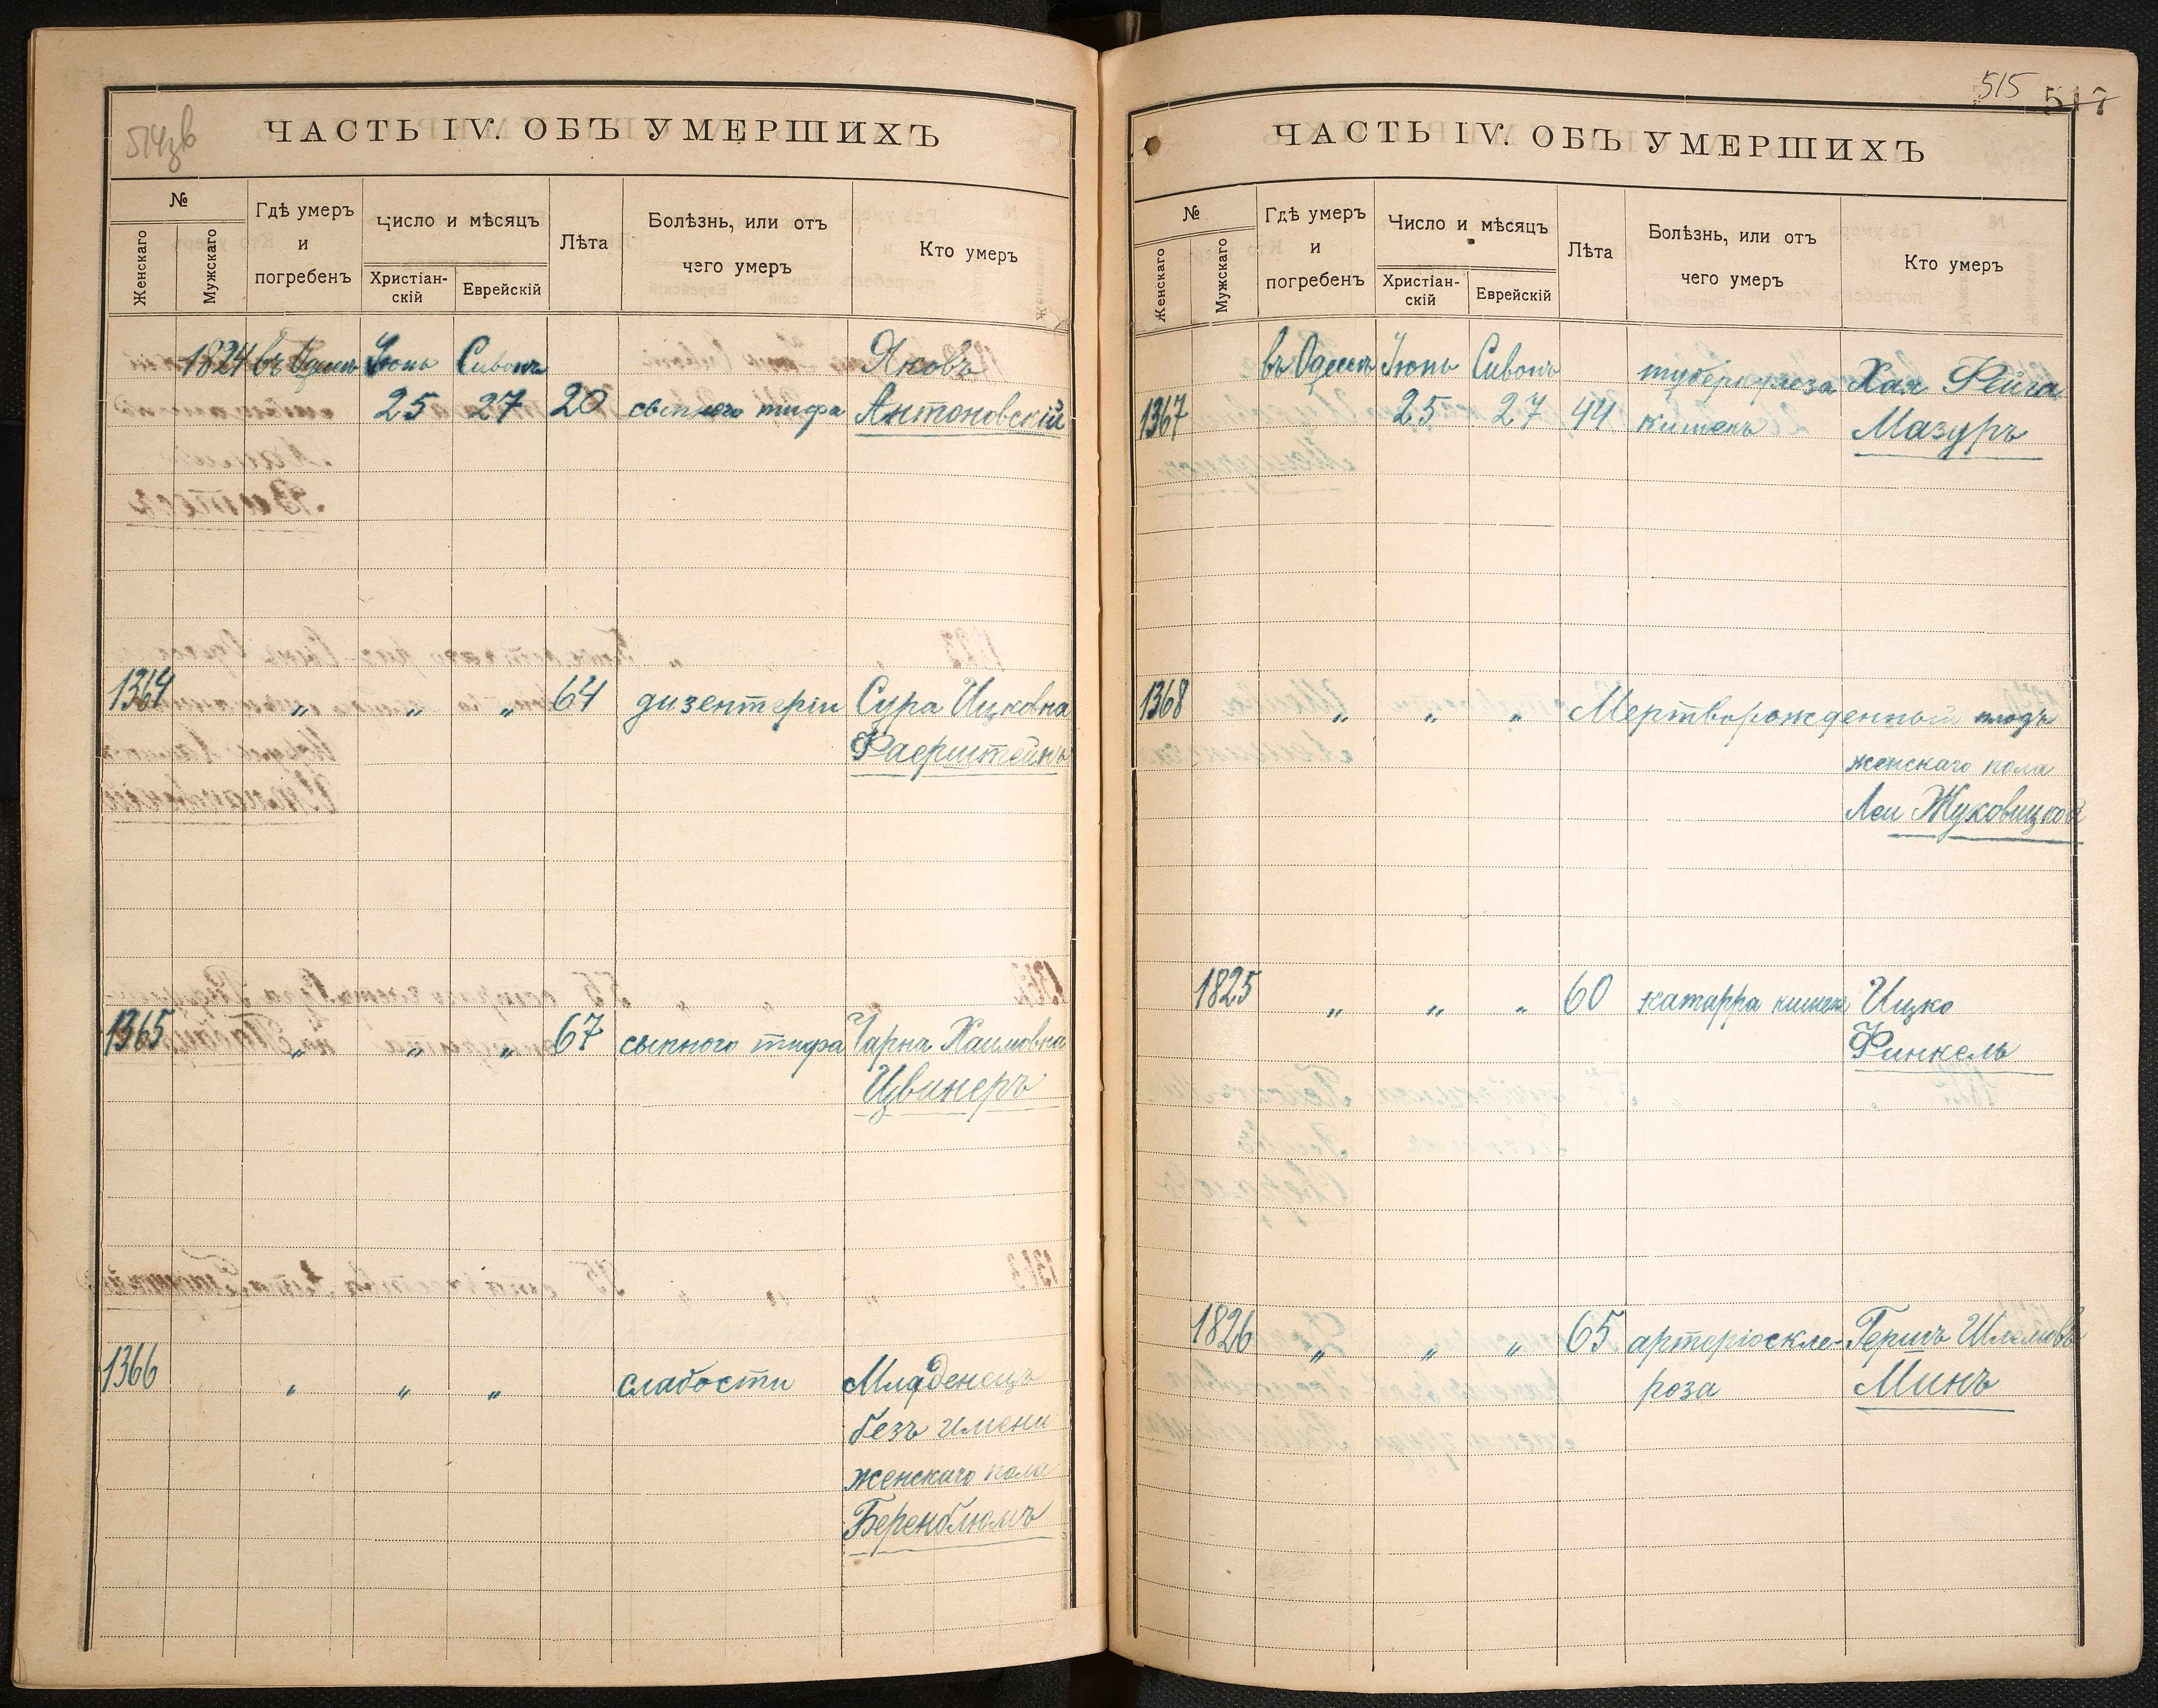 514зв
ЧАСТЬ IV. ОБЪ УМЕРШИХЪ
№
Женскаго
Мужскаго
Гдѣ умеръ
и
погребенъ
Число и мѣсяцъ
Христіан-
скій
Еврейскій
Лѣта
Болѣзнь, или отъ
чего умеръ
Кто умеръ
1824 въ Одессѣ Іюнь Сивонъ Яковъ
25 27 20 сыпного тифа Антоновскій
1364 „ „ „ 64 дизентеріи Сура Ицковна
Фаерштейнъ
1365 „ „ „ 67 сыпного тифа Чарна Хаимовна
Цвинеръ
1366 „ „ „ слабости Младенецъ
безъ имени
женскаго пола
Беренблюмъ
515 517
ЧАСТЬ IV. ОБЪ УМЕРШИХЪ
№
Женскаго
Мужскаго
Гдѣ умеръ
и
погребенъ
Число и мѣсяцъ
Христіан-
скій
Еврейскій
Лѣта
Болѣзнь, или отъ
чего умеръ
Кто умеръ
въ Одессѣ Іюнь Сивонъ туберкулеза Хая Фейга
1367 25 27 44 кишекъ Мазуръ
1368 „ „ „ Мертворожденный плодъ
женскаго пола
Леи Жуковицкой
1825 „ „ „ 60 катарра кишекъ Ицко
Финкель
1826 „ „ „ 65 артеріоскле- Гершъ Шлемовъ
роза Минъ